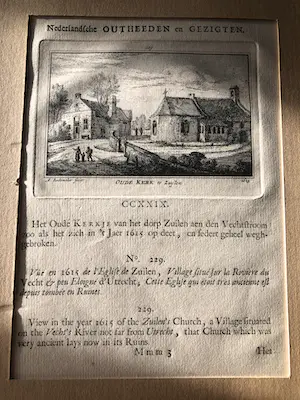 Nederlandsche OUTHEEDEN en GEZIGTEN.
OUDE KERK te Zuylen
CCXXIX.
Het Oude KERKJE van het dorp Zuilen aen den Vechtstroom
zoo als het zich in 't Jaer 1615 op deet, en sedert geheel wegh-
gebroken.
No. 229.
Vüe en 1615 de l'Eglise de Zuilen, Village situé sur la Riviere du
Vecht & peu Eloigné d'Utrecht, Cette Eglise qui étoit tres ancienne est
depuis tombée en Ruines.
229.
View in the year 1615 of the Zuilen's Church, a Village situated
on the Vecht's River not far from Utrecht, that Church which was
very ancient lays now in its Ruins.
M m m 3 Het